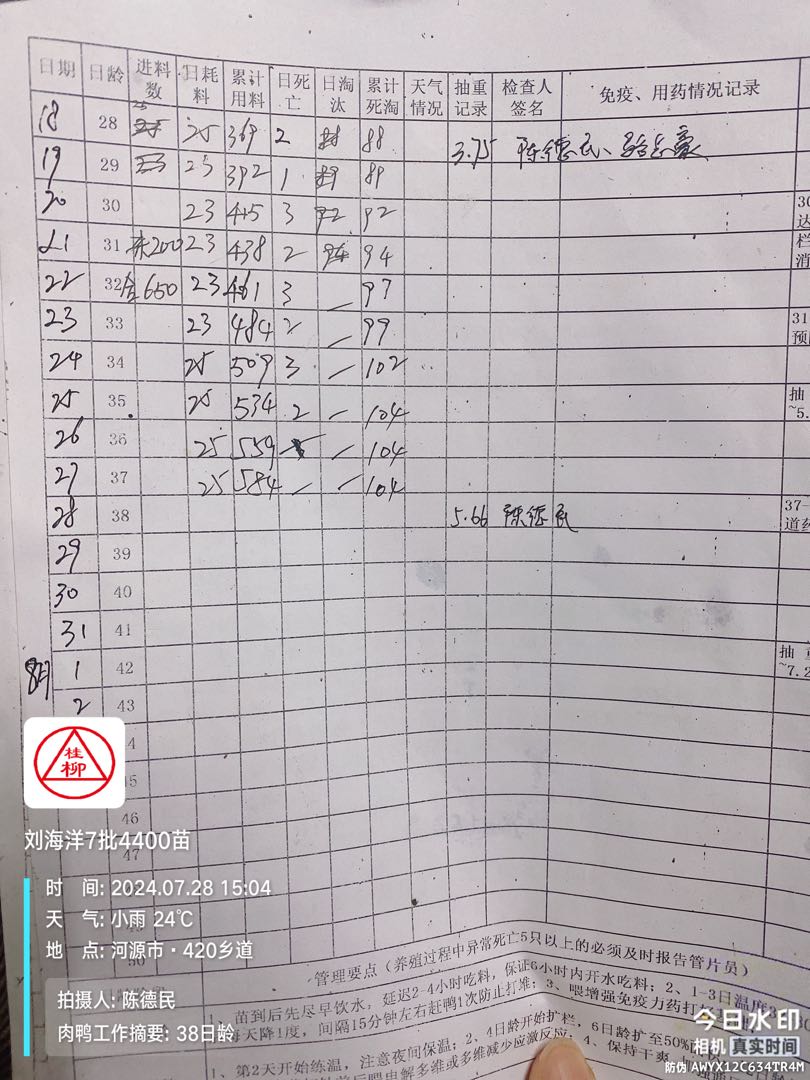 日期 日龄 进料数 日耗料 累计用料 日死亡 日淘汰 累计死淘 天气情况 抽重记录 检查人签名 免疫、用药情况记录
18 28 25 25 369 2 88 3.75 陈德民、
19 29 23 392 1 89
20 30 23 415 3 92
21 31 200 23 438 2 94
22 32 650 23 461 3 97
23 33 23 484 2 — 99
24 34 25 509 3 — 102
25 35 25 534 2 — 104
26 36 25 559 — — 104
27 37 25 584 — — 104
28 38 5.66 陈德民
29 39
30 40
31 41
8月 1 42
2 43
4
45
46
47
30
达
栏
消
31
预
抽
~5.
37-
道
抽重
~7.2
桂柳
刘海洋7批4400苗
时 间: 2024.07.28 15:04
天 气: 小雨 24℃
地 点: 河源市·420乡道
拍摄人: 陈德民
肉鸭工作摘要: 38日龄
管理要点（养殖过程中异常死亡5只以上的必须及时报告管片员）
1、苗到后先尽早饮水，延迟2-4小时吃料，保证6小时内开水吃料；2、1-3日温度3
每天降1度，间隔15分钟左右赶鸭1次防止打堆；3、喂增强免疫力药
1、第2天开始练温，注意夜间保温；2、4日龄开始扩栏，6日龄扩至50%
电解多维或多维减少应激反应；4、保持干爽
今日水印
相机 真实时间
防伪 AWYX12C634TR4M